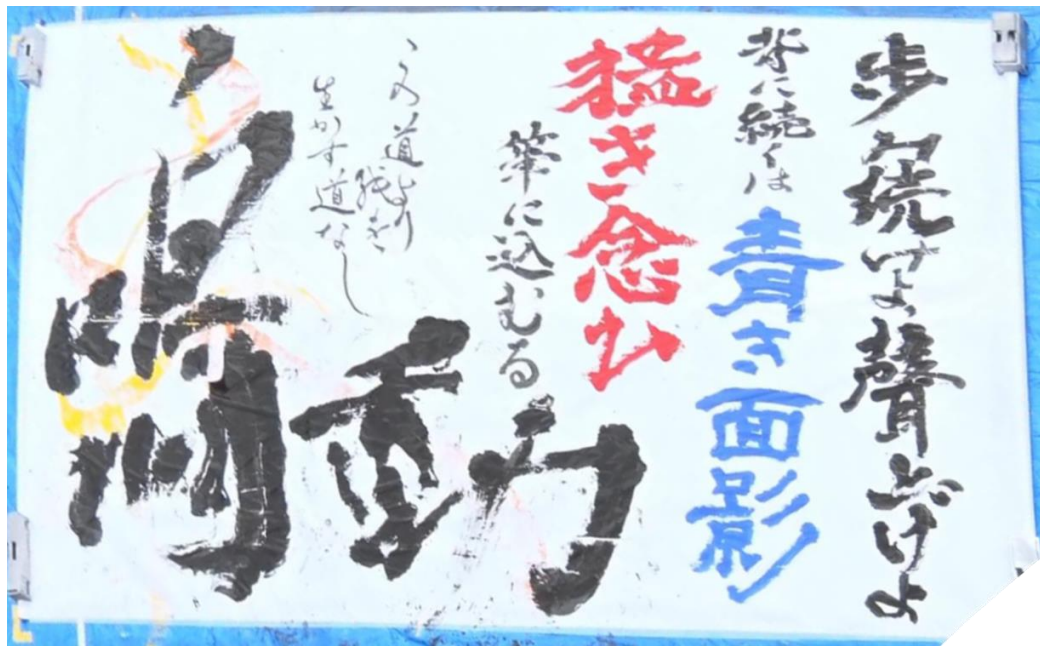 歩み続けよ聲上げよ
背に続くは青き面影
猛き念ひ
筆に込むる
この道より
我を
生かす道なし
鳴動